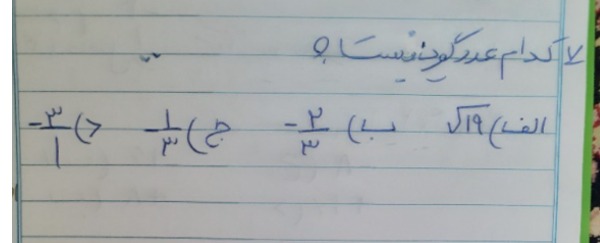 ۷ کدام عدد گویا نیست؟
الف) √۱۹ ب) -۲/۳ ج) -۱/۳ د) -۳/۱